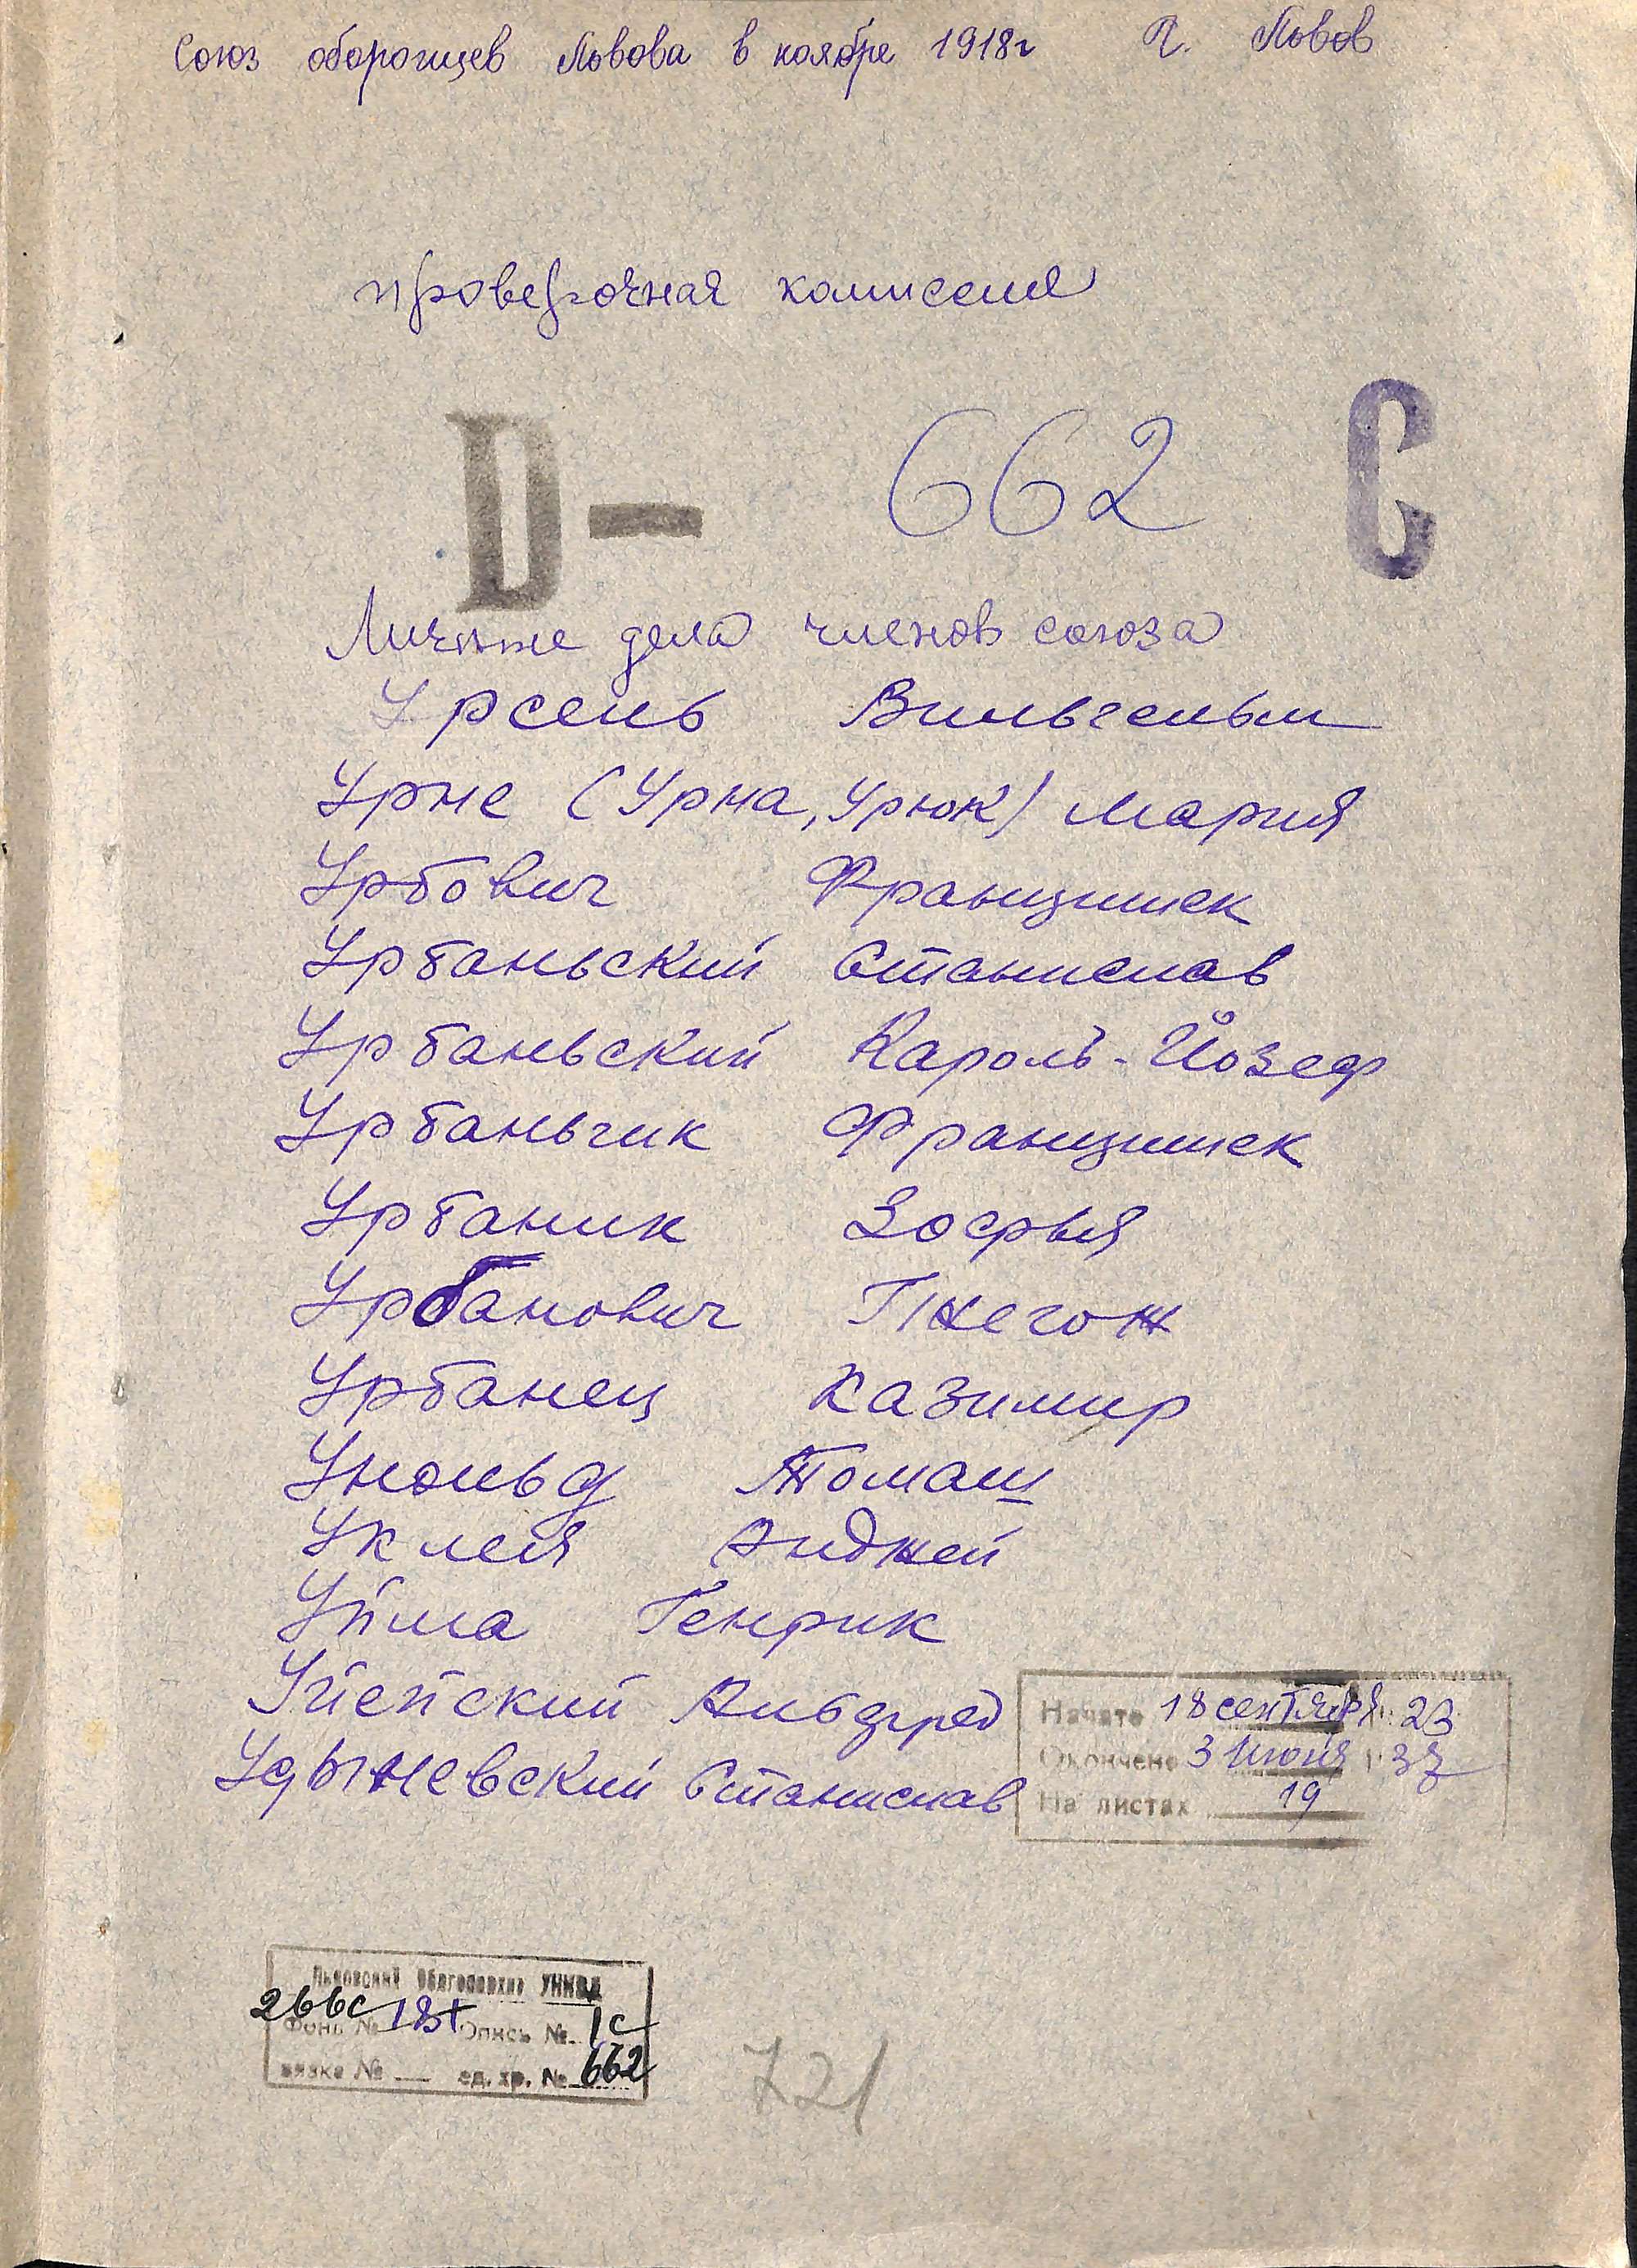 Союз оборонцев Львова в ноябре 1918г г. Львов
проверочная комиссия
D — 662 С
Личные дела членов союза
Урсель Вильгельм
Урне (Урна, Урюк) Мария
Урбович Францишек
Урбаньский Станислав
Урбаньский Кароль-Йозеф
Урбаньчик Францишек
Урбаник Зофья
Урбанович Гжегож
Урбанец Казимир
Унольд Томаш
Уклея Анджей
Уйма Генрик
Уйейский Альфред
Удыневский Станислав
Начато 18 сентября 23
Окончено 3 июня 37
На листах 19
Львовский Облгосархив УНКВД
266с 181 1с
Фонд № Опись №
вязка № — ед. хр. № 662
721